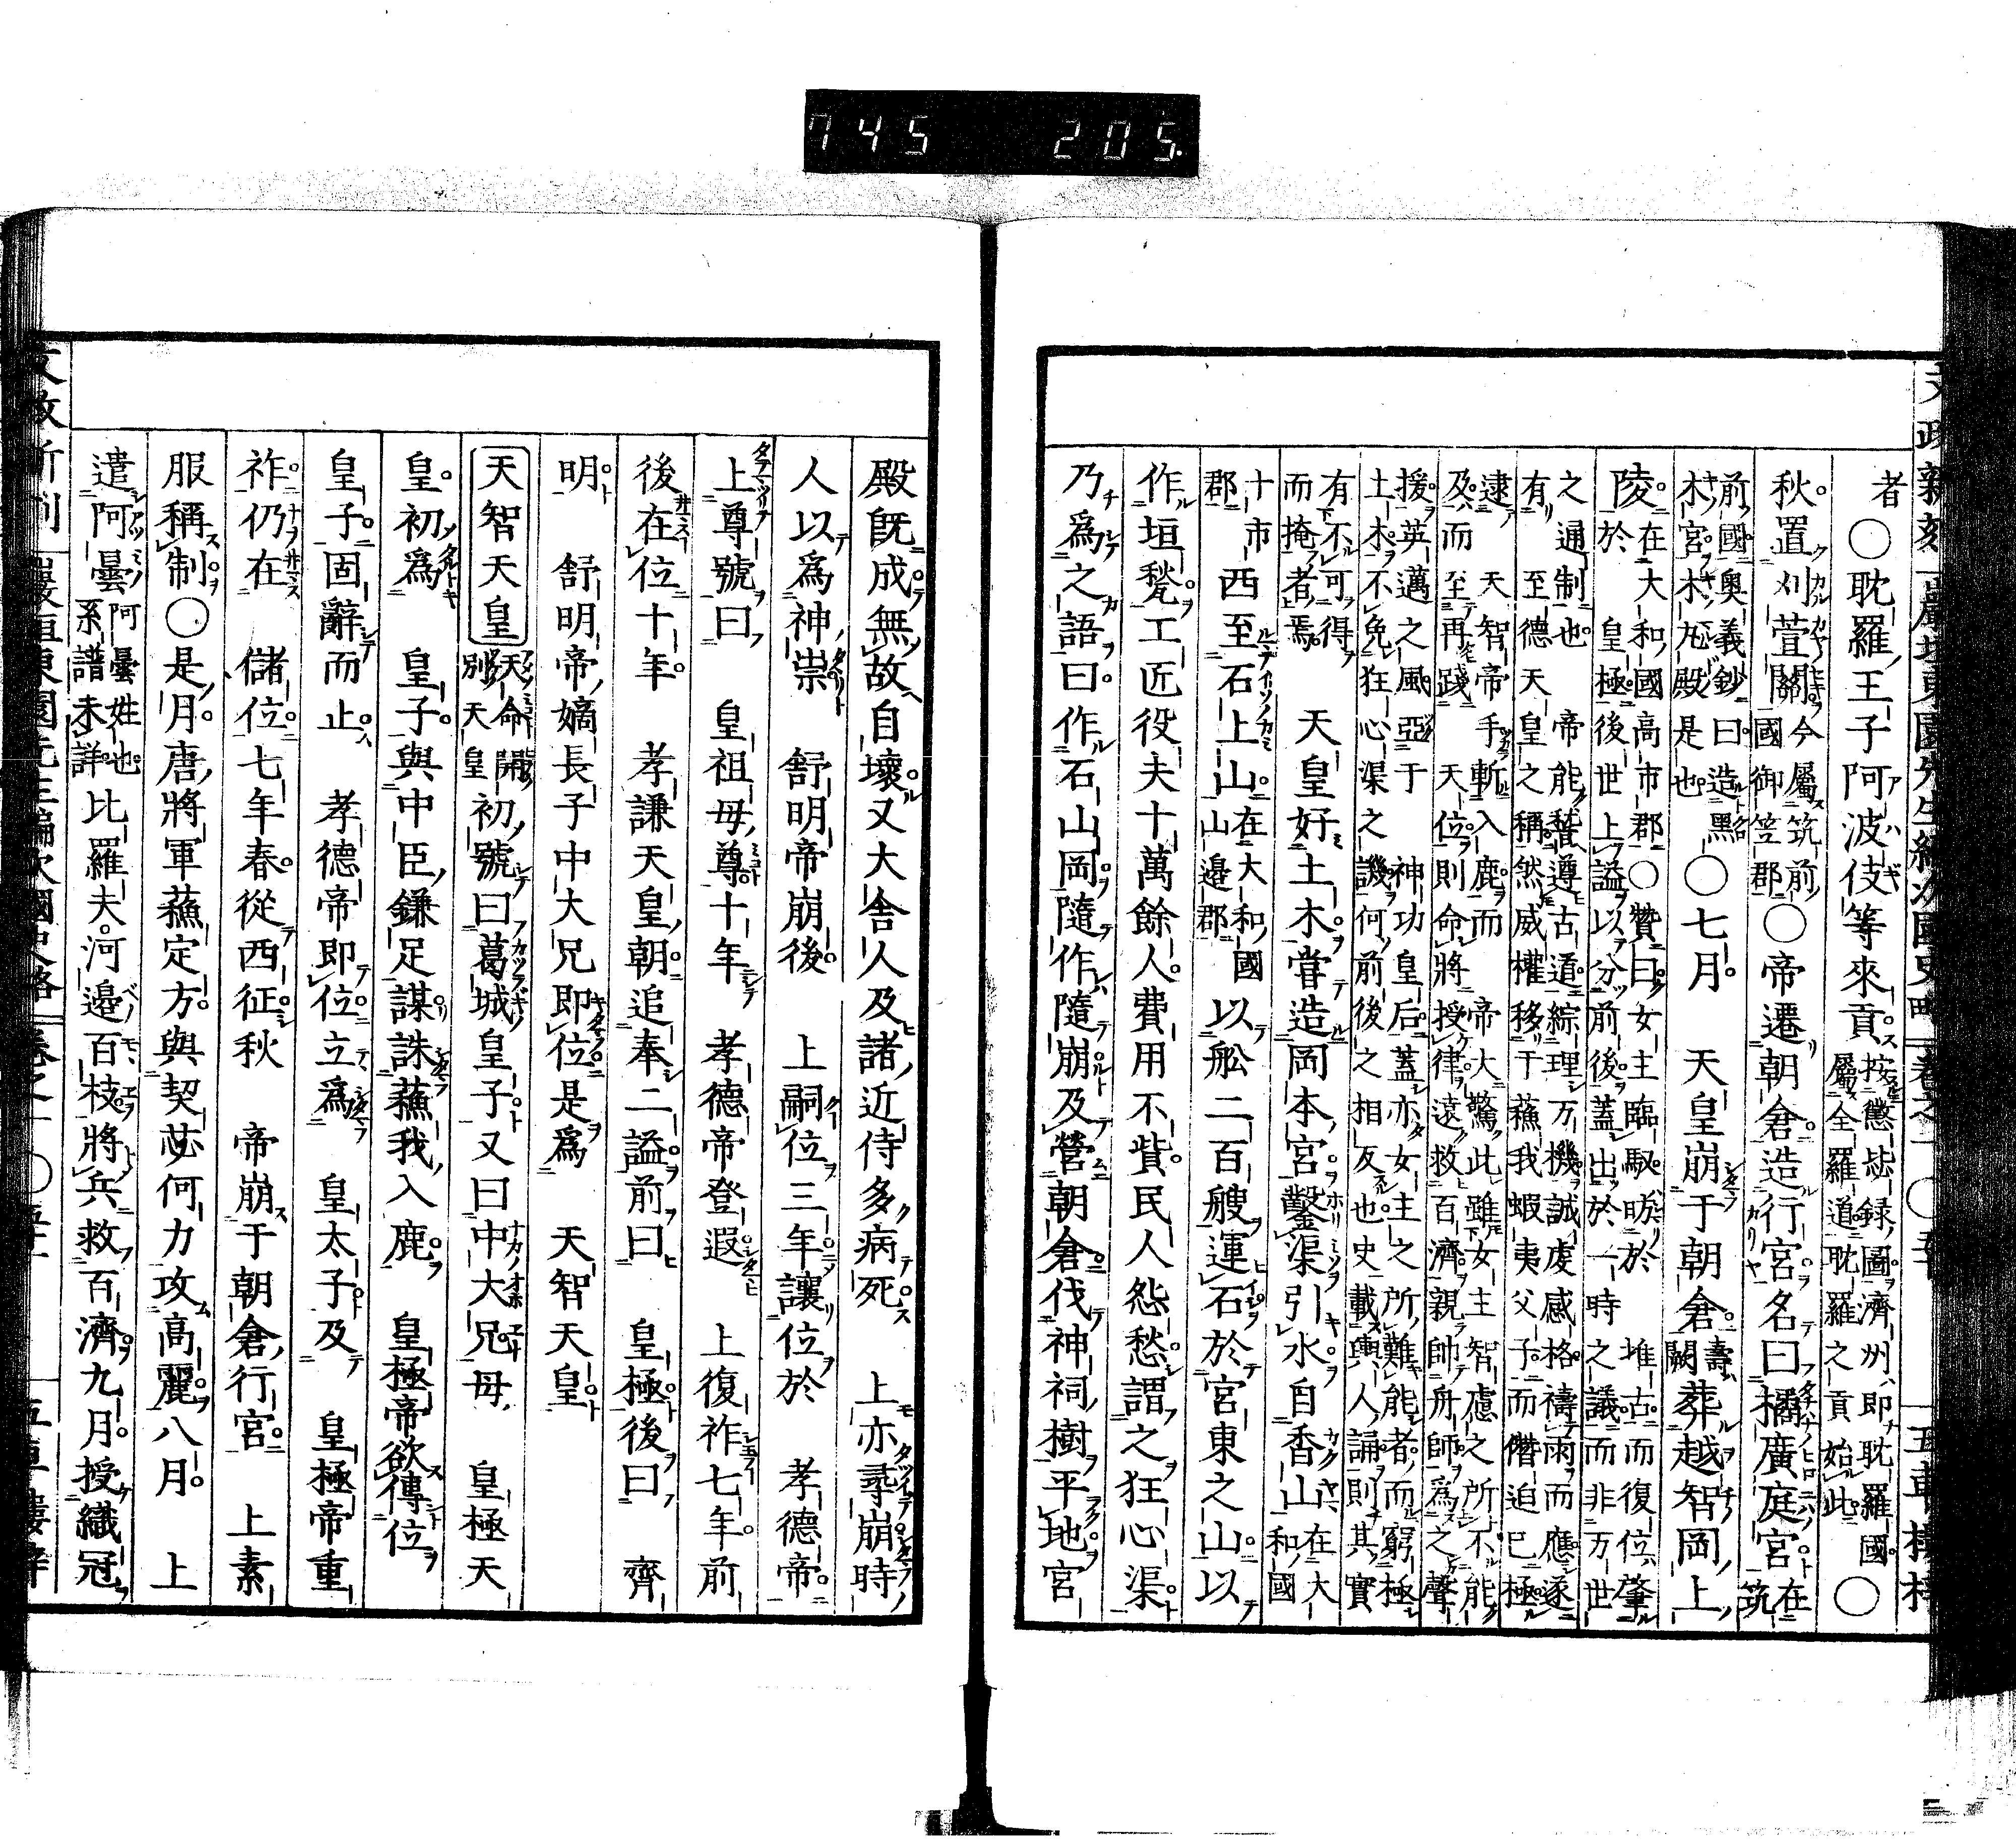 745 205
者○耽羅王子阿波伎等來貢按懲毖録圖濟州即耽羅國
屬全羅道耽羅之貢始此○
秋置刈萱關今屬筑前
國御笠郡○帝遷朝倉造行宮名曰橘廣庭宮在
筑
前國奥義鈔曰造黑
木宮木丸殿是也○七月 天皇崩于朝倉壽
闕葬越智岡上
陵在大和國高市郡○贊曰女主臨馭昉於 推古而復位肇
於 皇極後世上謚以分前後蓋出於一時之議而非万世
之通制也 帝能稽尊古道綜理万機誠虔感格禱雨而應遂
有至德天皇之稱然威權移于蘇我蝦夷父子而僭迫已極
逮 天智帝手斬入鹿而 帝大驚此雖女主智慮之所不能
及而至再踐 天位則命將授律遠救百濟親帥舟師爲之聲
援英邁之風亞于 神功皇后蓋亦女主之所難能者而窮極
土木不免狂心渠之譏何前後之相反也史載輿人誦則其實
有不可得
而掩者焉 天皇好土木嘗造岡本宮鑿渠引水自香山在大
和國
十市
郡西至石上山在大和國
山邊郡以舩二百艘運石於宮東之山以
作垣甃工匠役夫十萬餘人費用不貲民人怨愁謂之狂心渠
乃爲之語曰作石山岡隨作隨崩及營朝倉伐神祠樹平地宮
殿既成無故自壞又大舍人及諸近侍多病死 上亦尋崩時
人以爲神祟 舒明帝崩後 上嗣位三年讓位於 孝德帝
上尊號曰 皇祖母尊十年 孝德帝登遐 上復祚七年前
後在位十年 孝謙天皇朝追奉二謚前曰 皇極後曰 齊
明 舒明帝嫡長子中大兄即位是爲 天智天皇
天智天皇天命開
別天皇初號曰葛城皇子又曰中大兄母 皇極天
皇初爲 皇子與中臣鎌足謀誅蘇我入鹿 皇極帝欲傳位
皇子固辭而止 孝德帝即位立爲 皇太子及 皇極帝重
祚仍在 儲位七年春從西征秋 帝崩于朝倉行宮 上素
服稱制○是月唐將軍蘇定方與契苾何力攻高麗八月 上
遣阿曇阿曇姓也
系譜未詳比羅夫河邉百枝將兵救百濟九月授織冠